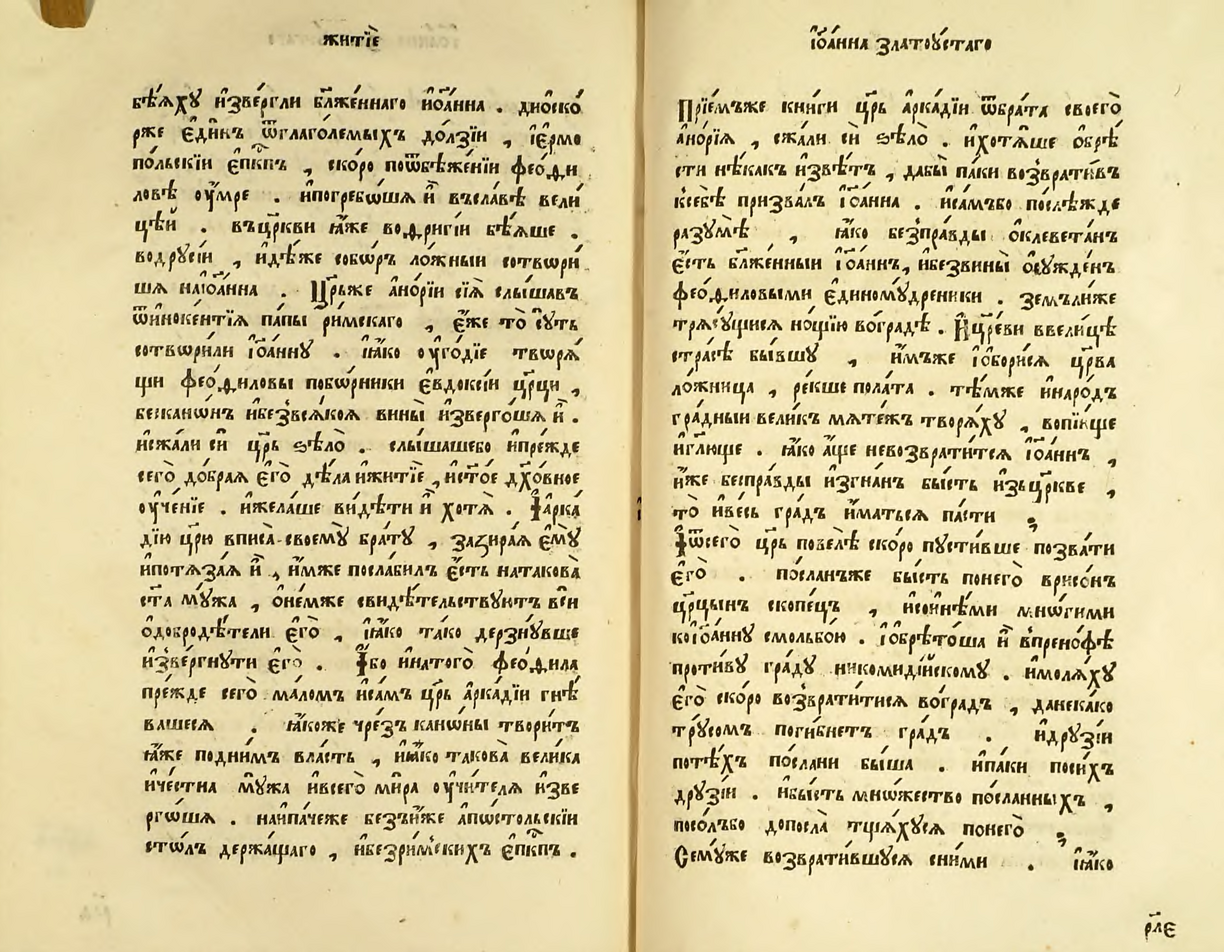 житїѐ
бѣ́ѧхꙋ и҆зве́ргли бл҃же́ннаго и҆ѡа́нна . дїоско́
рже є҆ди́нъ ѿглаго́лемыхъ до́лзїи , і҆е́рмо
по́льскїи є҆пⷭ҇кпъ , ско́ро поѿбѣже́нїи ѳео́ѳи
ловѣ оу҆́мре . ипогребо́шѧ и҆̀ въсла́вѣ вели́
цѣи . въцр҃кви ꙗ҆́же воѳриги́и бѣ́ѧше .
водрꙋсі́и , и҆дѣ́же собо́ръ ло́жныи сотвори́
шѧ наі҆ѡа́нна . Цр҃ьже а҆но́рїи сїѧ̀ слы́шавъ
ѿи҆ноке́нтїѧ па́пы ри́мскаго , є҆́же то̀ сꙋ́ть
сотвори́ли і҆ѡа́ннꙋ . ꙗ҆́ко оу҆го́дїе творѧ́
щи ѳео́ѳиловы побо́рники є҆vдоксі́и цр҃ци ,
бесканѡ́нъ ибе́звсѧкоѧ вины̀ и҆зверго́шѧ и҆̀ .
исжа́ли си цр҃ь ѕѣло̀ . слы́шашебо ипре́жде
сего̀ до́браѧ є҆го̀ дѣ́ла ижитїѐ , исто́е дх҃о́вное
оу҆че́нїе . ижела́ше ви́дѣти и҆̀ хотѧ̀ . І҆арка́
дїю цр҃ю вписа̀ своемꙋ̀ бра́тꙋ , зазира́ѧ є҆мꙋ̀
ипотѧза́ѧ и҆̀ , и҆́мже посла́билъ є҆́сть натакова̀
ста мꙋ́жа , ѻ҆не́мже свидѣ́тельствꙋютъ всѝ
ѡ҆добродѣ́тели є҆го̀ , ꙗ҆́ко та́ко дерзнꙋ́вше
и҆зве́ргнꙋти є҆го̀ . І҆бо инатого̀ ѳео́ѳила
пре́жде сего̀ ма́ломъ иса́мъ цр҃ь а҆рка́дїи гнѣ́
вашесѧ . ꙗ҆́коже чре́зъ кано́ны твори́тъ
ꙗ҆́же подни́мъ вла́сть , иꙗ҆́ко такова̀ вели́ка
иче́стна мꙋ́жа ивсего̀ ми́ра оу҆чи́телѧ и҆зве
рго́шѧ . наипа́чеже безъи́же а҆по́стольскїи
сто́лъ держа́щаго , ибезри́мскихъ є҆пⷭ҇кпъ .
і҆ѡа́нна златоꙋ́стаго
Прїе́мъже кни́ги цр҃ь а҆рка́дїи ѿбра́та своего̀
а҆но́рїѧ , сжа́ли си ѕѣло̀ . ихотѧ́ше ѡ҆брѣ
сти нѣ́какъ и҆звѣ́тъ , дабы̀ па́ки возврати́въ
ксебѣ̀ призва́лъ і҆ѡа́нна . иса́мъбо послѣ́жде
разꙋмѣ̀ , ꙗ҆́ко беспра́вды ѡ҆клевета́нъ
є҆́сть бл҃же́нныи і҆ѡа́ннъ, ибезвины̀ ѡ҆сꙋжде́нъ
ѳео́ѳиловыми є҆диномꙋ́дреники . земълѝже
трѧсꙋ́щисѧ но́щїю вогра́дѣ . И҆цр҃е́ви ввели́цѣ
стра́сѣ бы́вшꙋ , и҆́мъже і҆ѡбори́сѧ цр҃ва
ло́жница , ре́кше пола́та . тѣ́мже инаро́дъ
гра́дныи вели́къ мѧте́жъ творѧ́хꙋ , вопїю́ще
игл҃юще . ꙗ҆́ко а҆́ще невозврати́тсѧ і҆ѡа́ннъ ,
и҆́же беспра́вды изгна́нъ бы́сть изъцр҃кве ,
то̀ иве́сь гра́дъ и҆́матьсѧ па́сти ,
І҆ѿсего̀ цр҃ь повелѣ̀ ско́ро пꙋсти́вше позва́ти
є҆го̀ . по́сланъже бы́сть понего̀ врисо́нъ
цр҃цынъ скопе́цъ , исои́нѣми мно́гими
коі҆ѡа́ннꙋ смольбо́ю . і҆ѡбрѣто́ша и҆̀ впрено́фѣ
проти́вꙋ гра́дꙋ никомиді́искомꙋ . имолѧ́хꙋ
є҆го̀ ско́ро возврати́тисѧ во́градъ , данека́ко
трꙋ́сомъ поги́бнетъ гра́дъ . идрꙋзі́и
потѣ́хъ по́слани бы́ша . ипа́ки поси́хъ
дрꙋзі́и . ибы́сть мно́жество по́сланныхъ ,
посо́лъбо допосла̀ тщѧ́хꙋсѧ понего̀ ,
Семꙋ́же возврати́вшꙋсѧ сни́ми . ꙗ҆́ко
рл҃є